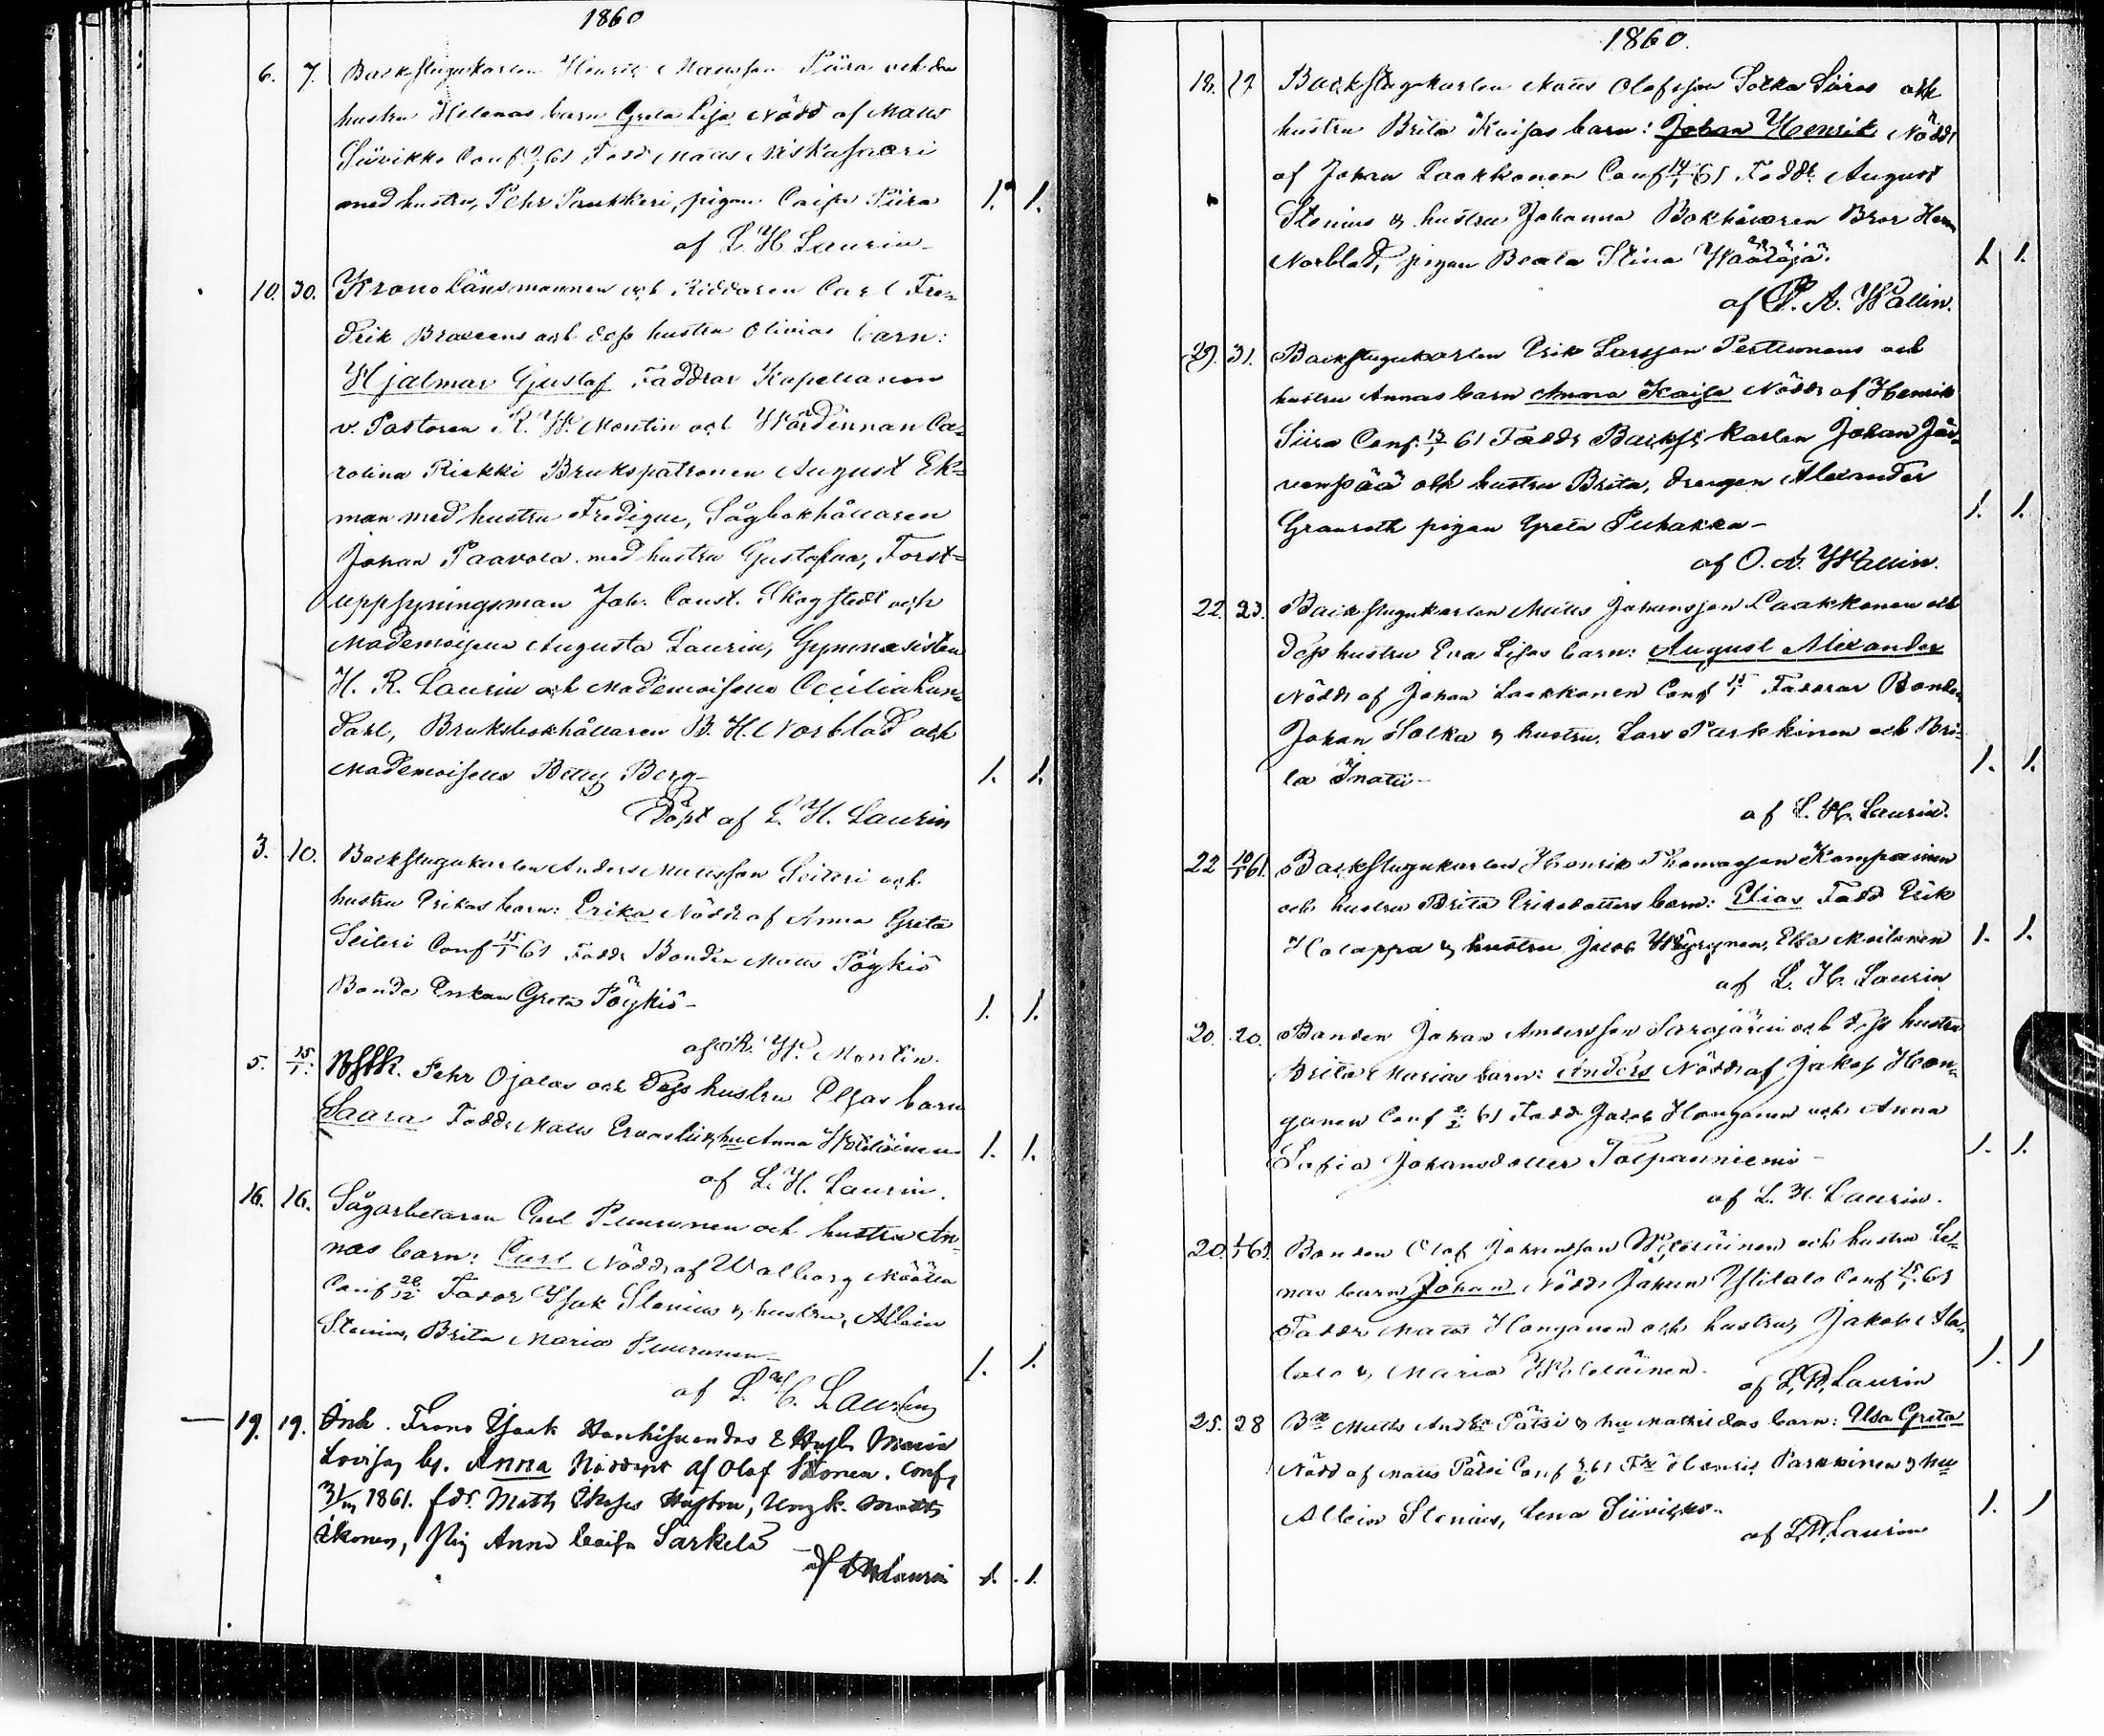 1860
6. 7. Backstugukarlen Henric Mattsson Piira och dess
hustru Helenas barn Greta Lisa Nödd af Matts
Siivikko Conf 61 Fadd Matts Niskasaari
med hustru, Pehr Paukkeri, pigan Caisa Piira 1. 1.
af L. H. Laurin
10. 30. Krono Länsmannen och Riddaren Carl Fre-
drik Braxens och dess hustru Olivias barn:
Hjalmar Gustaf Faddrar Kapellanen
v. Pastoren R. W. Montin och Wärdinnan Ca-
rolina Riekki Brukspatronen August Ek-
man med hustru Fredique, Sågbokhållaren
Johan Paavola med hustru Gustafva, Forst-
uppsyningsman Joh. Const. Skogstedt och
Mademoiselle Augusta Laurin, Gymnasisten
H. R. Laurin och Mademoiselle Cecilia Lun-
dahl, Bruksbokhållaren B. H. Norblad och
Mademoiselle Betty Berg 1. 1.
Döpt af L. H. Laurin
3. 10. Backstugukarlen Anders Mattsson Seiteri och
hustru Erikas barn: Erika Nödd af Anna Greta
Seiteri Conf 15/1 61 Fadd Bonden Matts Pöykiö
Bonde Enkan Greta Pöykiö 1. 1.
af R. W. Montin.
5. 15/1. Bstk. Pehr Ojalas och dess hustru Elsas barn
Saara Fadd Matts Ervasti & hu Anna Wäläinen 1. 1.
af L. H. Laurin.
16. 16. Sågarbetaren Carl Puurunen och hustru An-
nas barn: Carl Nödd af Walborg Määttä
Conf 26/12 Fador Isak Stenius & hustru, Albin
Stenius, Brita Maria Puurunen 1. 1.
af L. H. Laurin
19. 19. Inh. Frans Isaak & Hust Maria
Lovisas b. Anna Nöddöpt af Olof Conf
1861. fdr. Matth Hustru, Ungk. Matts
Ikonen, Pig Anna Caisa Sarkela
af LHLaurin 1. 1.
1860.
18. Backstugukarlen Matts Olofsson Solka Siiras och
hustru Brita Kaisas barn: Johan Henrik Nödd
af Johan Laakkonen Conf 14/1 61 Fadd: August
Stenius & hustru Johanna Bokhållaren Bror Herm
Norblad, pigan Beata Stina Wäätäjä. 1. 1.
af O. A. Wallin.
29. 31. Backstugukarlen Erik Larsson Perttunens och
hustru Annas barn Anna Kaisa Nödd af Henrik
Siira Conf. 61 Fadd Backst karlen Johan Jär-
venpää och hustru Brita, drengen Alexander
Granroth pigan Greta Puhakka 1. 1.
af O. A. Wallin.
22. 23. Backstugukarlen Matts Johansson Laakkonen och
dess hustru Eva Lisas barn: August Alexander
Nödd af Johan Laakkonen Conf 15/1 Faddrar Bonden
Johan Solka & hustru, Lars Parkkinen och Bri-
ta Inatii 1. 1.
af L. H. Laurin.
22 10/1 61. Backstugukarlen Henrik Thomasson Kompainen
och hustru Brita Eriksdotters barn: Elias Fadd Erik
Holappa & hustru Jacob Elsa Moilanen 1. 1.
af L. H. Laurin
20. 20. Bonden Johan Andersson Sarajärvi och dess hustru
Brita Marias barn: Anders Nödd af Jakob Hon-
ganen Conf 61 Fadd Jacob Honganen och Anna
Sofia Johansdotter Tolpanniemi 1. 1.
af L. H. Laurin.
20. 61. Bonden Olof Johansson Wäläinen och hustru Le-
nas barn Johan Nödd Johan Ylitalo Conf 15/1 61
Faddr Matts Honganen och hustru, Jakob Ala-
talo & Maria Wäläinen. 1. 1
af L. H. Laurin
25. 28 Bn Matts Andsn Pätsi & hu Mathildas barn: Ulla Greta
Nödd af Matts Pätsi Conf 61 Henric Parkkinen & hu
Albin Stenius, Lena Siivikko 1. 1
af LHLaurin